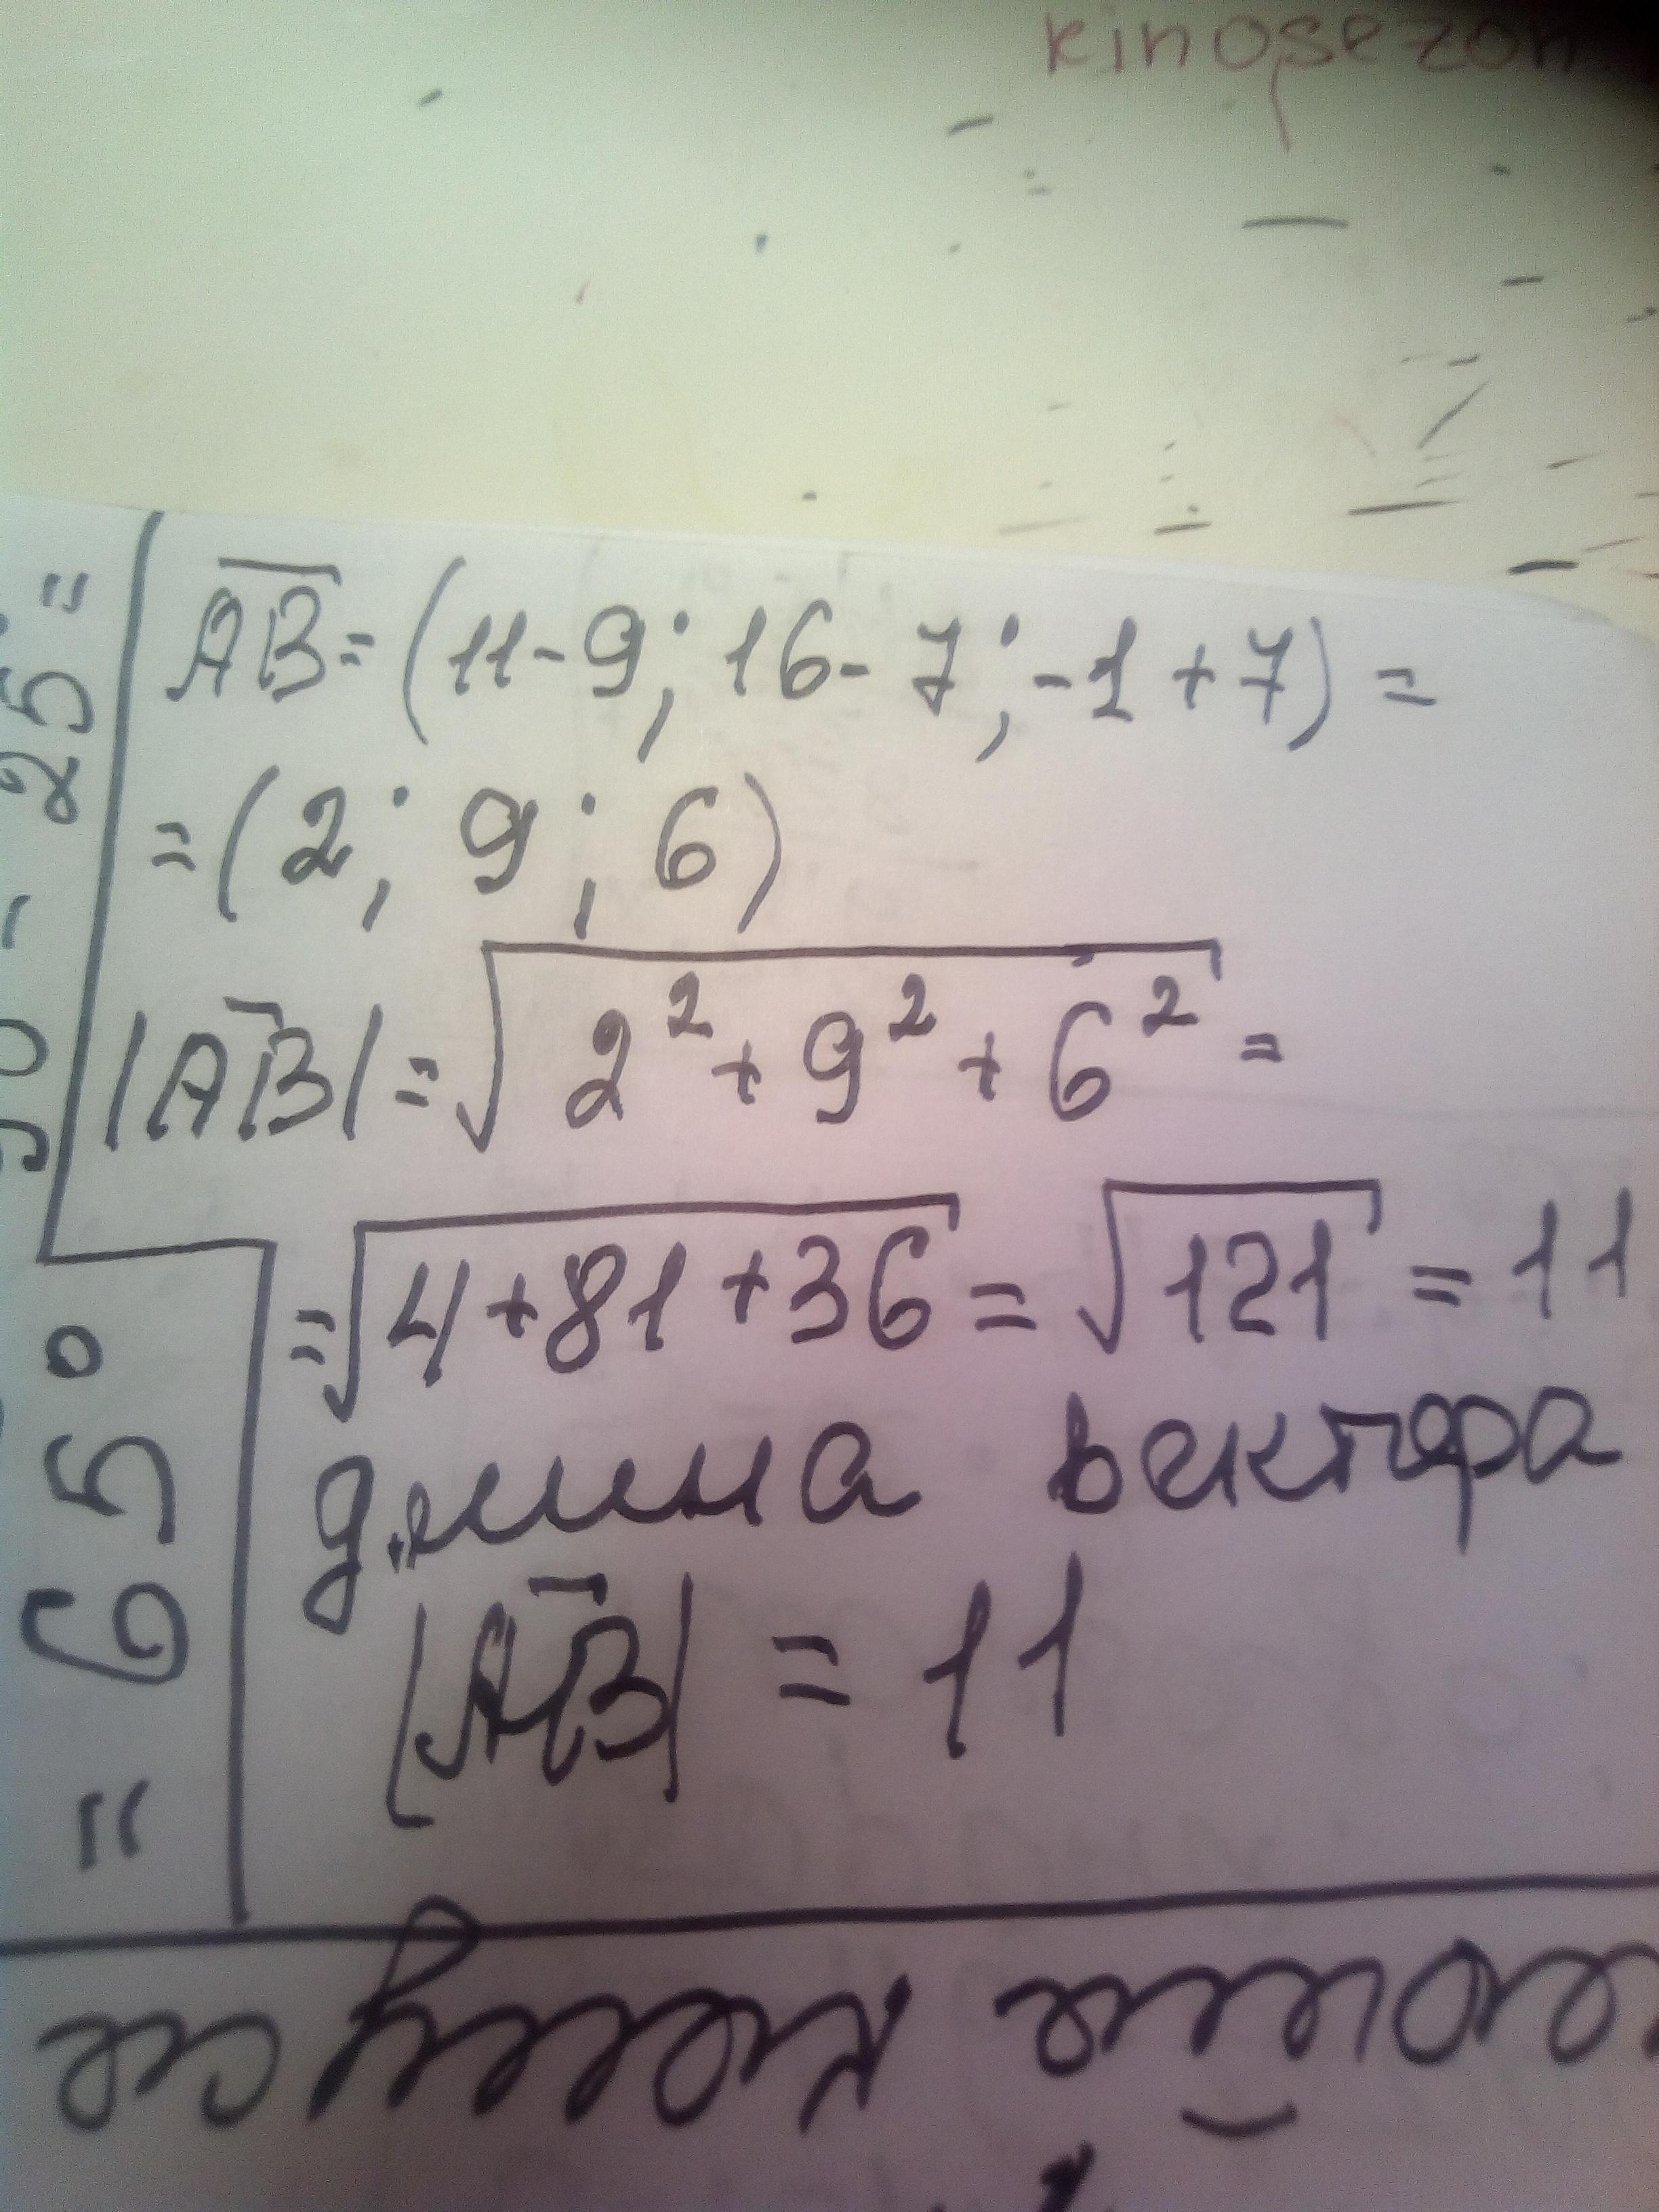 kinosezon
AB = (11 - 9; 16 - 7; -1 + 7) =
= (2; 9; 6)
|AB| = √2² + 9² + 6² =
= √4 + 81 + 36 = √121 = 11
длина вектора
|AB| = 11
- 25 =
= 65°